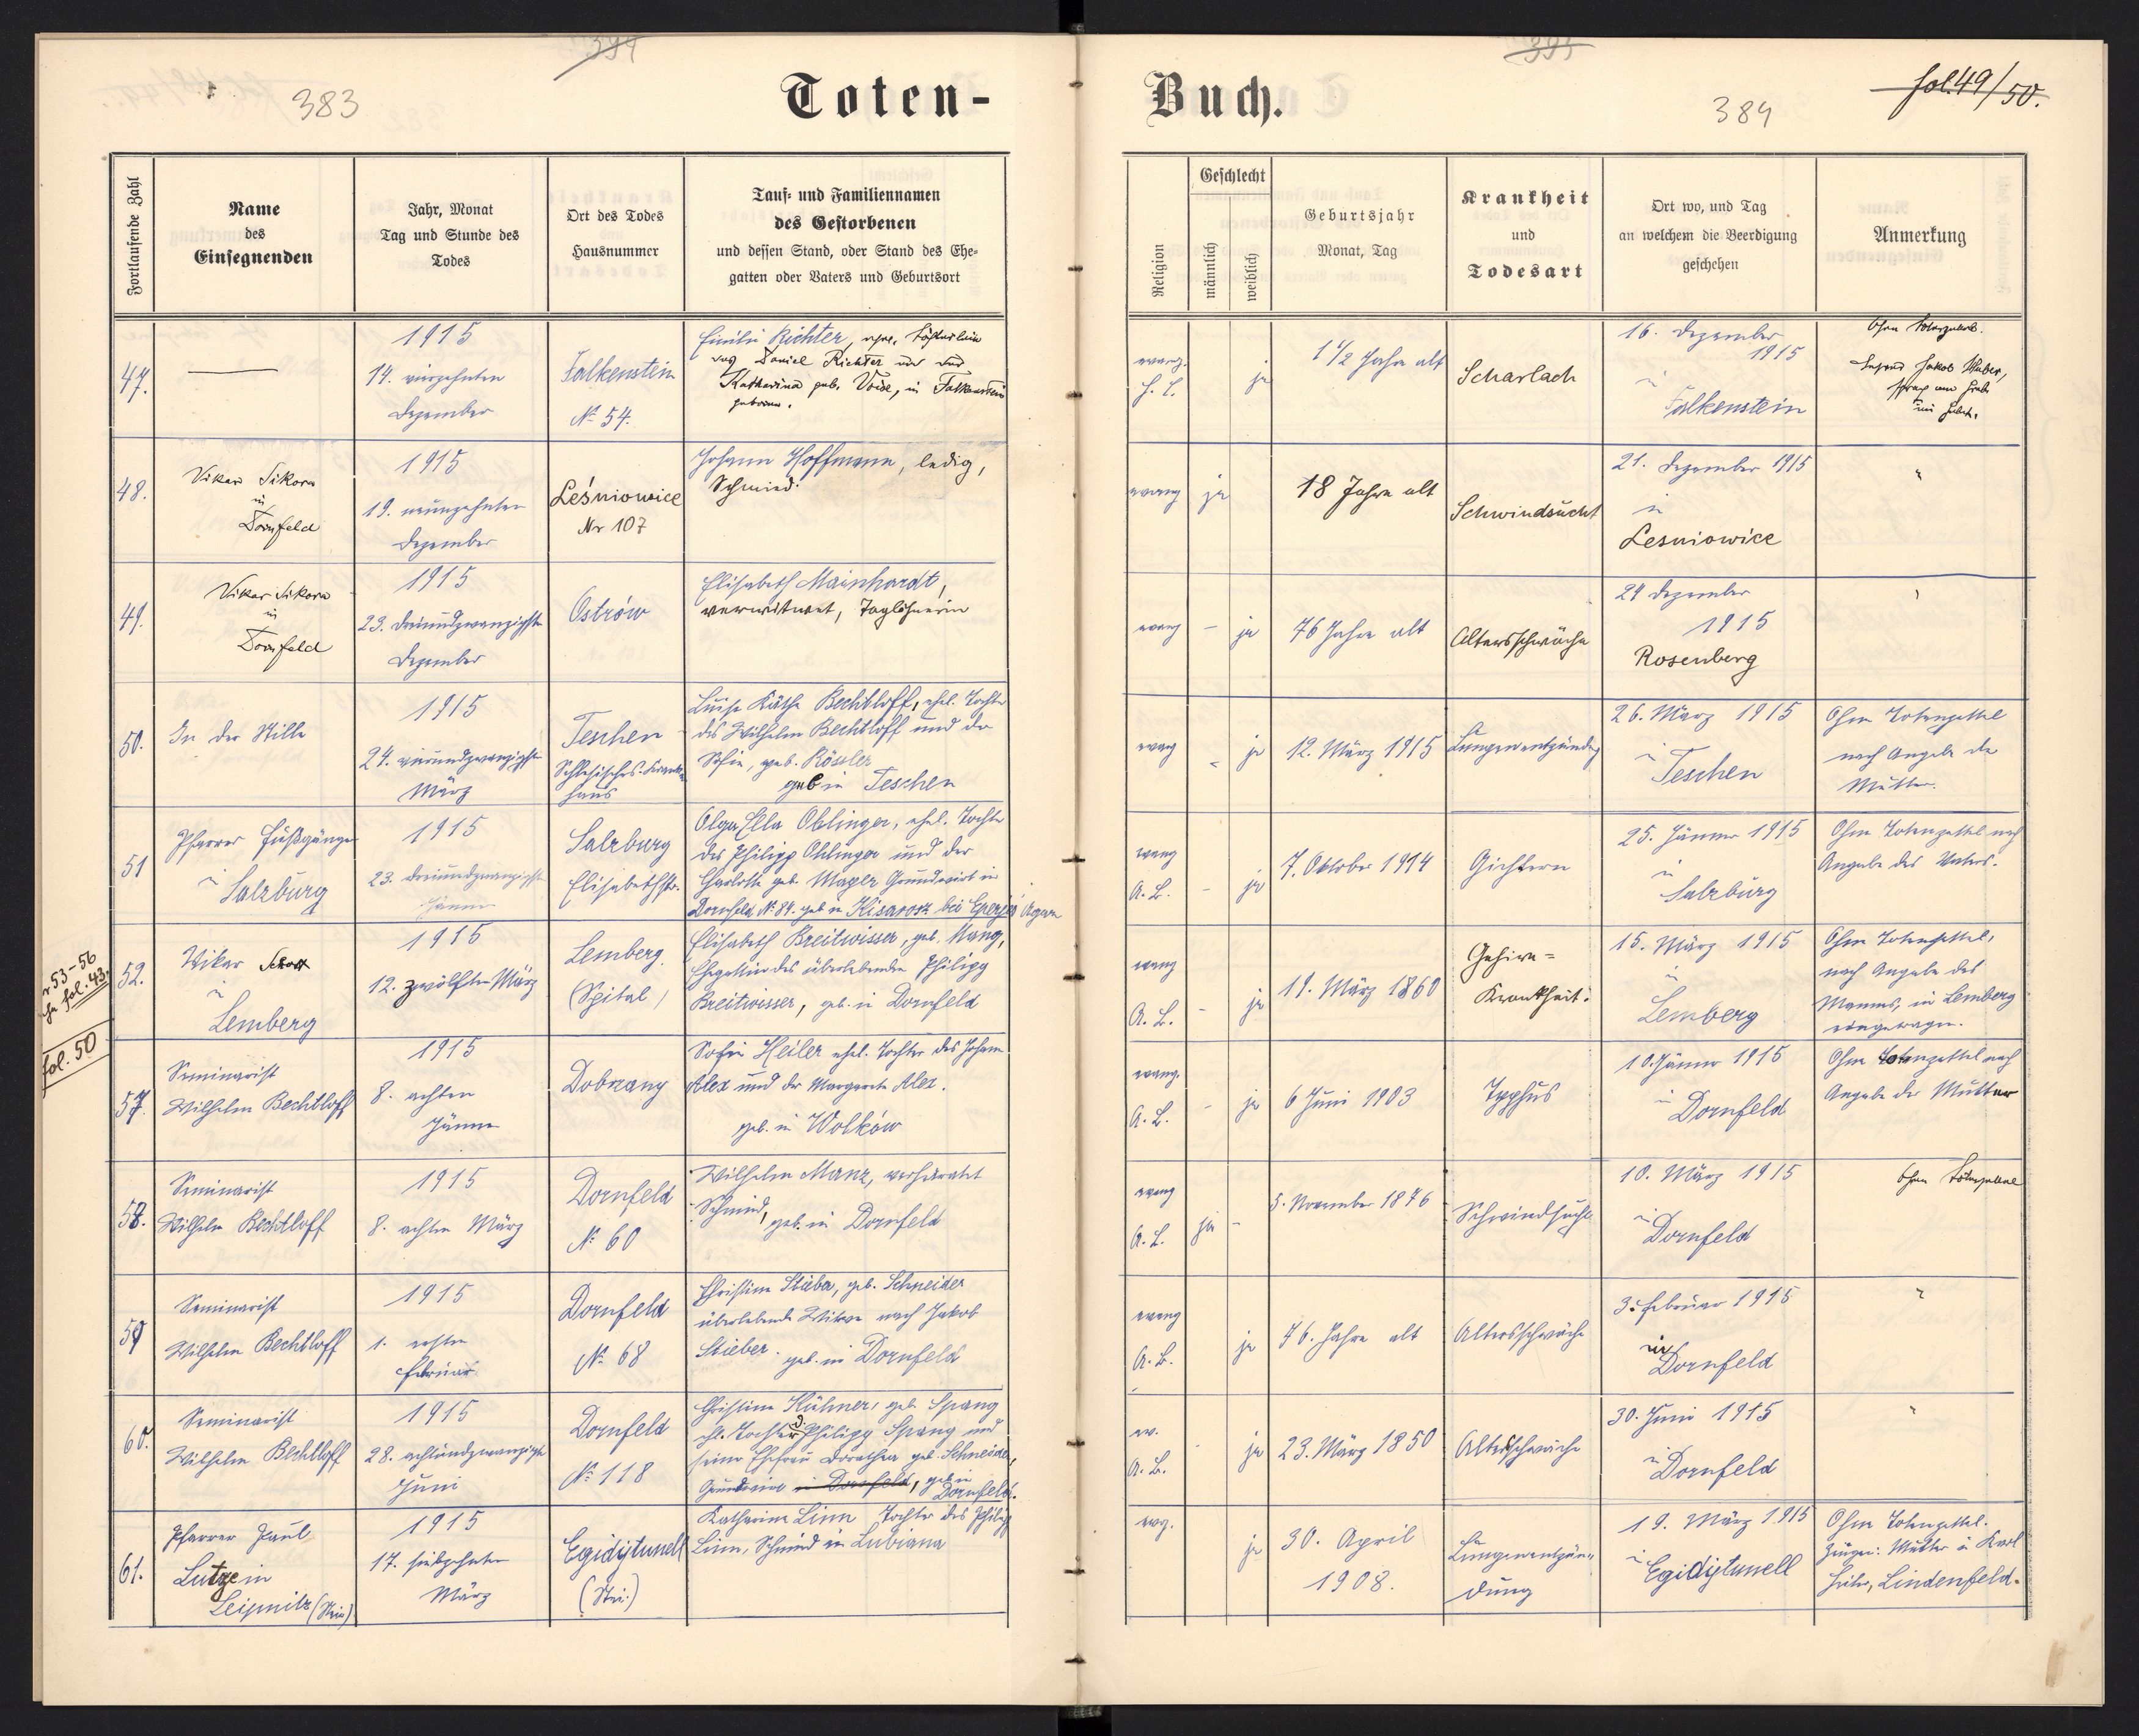 394
383
Toten-
Fortlaufende Zahl
Name
des
Einsegnenden
Jahr, Monat
Tag und Stunde des
Todes
Ort des Todes
Hausnummer
Tauf- und Familiennamen
des Gestorbenen
und dessen Stand, oder Stand des Ehe-
gatten oder Vaters und Geburtsort
47.
1915
14. vierzehnten
Dezember
Falkenstein
No 54.
Emilie Richter, ehel. Töchterlein
des Daniel Richter und der
Katharina geb. Voise, in Falkenstein
geboren.
48.
Vikar Sikora
in
Dornfeld
1915
19. neunzehnten
Dezember
Leśniowice
Nr 107
Johann Hoffmann, ledig,
Schmied.
49.
Vikar Sikora
in
Dornfeld
1915
23. dreiundzwanzigsten
Dezember
Ostrów
Elisabeth Mainhardt,
verwitwet, Taglöhnerin
50.
In der Stille
1915
24. vierundzwanzigsten
März
Teschen
Schlesisches Kranken
haus
Luise Käthe Bechtloff, ehel. Tochter
des Wilhelm Bechtloff und der
Sofie, geb. Rössler
geb in Teschen
51
Pfarrer Fußgänger
in Salzburg
1915
23. dreiundzwanzigsten
Jänner
Salzburg
Elisabethstr.
Olga Ella Oblinger, ehel. Tochter
des Philipp Oblinger und der
Charlotte geb. Mayer Grundwirt in
Dornfeld No 84. geb in Kisarosz bei Eperjes Ungarn
Nr. 53-56
siehe fol. 43.
fol. 50
52.
Vikar
in
Lemberg
1915
12. zwölften März
Lemberg.
(Spital)
Elisabeth Breitwisser, geb. Mang,
Ehegattin des überlebenden Philipp
Breitwisser, geb. in Dornfeld
57.
Seminarist
Wilhelm Bechtloff
1915
8. achten
Jänner
Dobrzany
Sofie Heiler ehel. Tochter des Johann
Alex und der Margarete Alex.
geb. in Wolków
58.
Seminarist
Wilhelm Bechtloff
1915
8. achten März
Dornfeld
No 60
Wilhelm Manz, verheiratet
Schmied, geb. in Dornfeld
59
Seminarist
Wilhelm Bechtloff
1915
1. ersten
Februar
Dornfeld
No 68
Christine Stieber, geb. Schneider
überlebende Witwe nach Jakob
Stieber. geb. in Dornfeld
60.
Seminarist
Wilhelm Bechtloff
1915
28. achtundzwanzigsten
Juni
Dornfeld
No 118
Christine Kühner, geb. Spang
ehl. Tochter d. Philipp Spang und
seiner Ehefrau Dorothea geb. Schneider,
Grundwirtin in Dornfeld, geb in
Dornfeld.
61.
Pfarrer Paul
Lutze in
Leipnitz (Stei)
1915
17. siebzehnten
März
Egidytunell
(Stei.)
Katharina Linn Tochter des Philipp
Linn, Schmied in Lubiana
395
Buch.
384
fol. 49/50.
Religion
Geschlecht
männlich
weiblich
Geburtsjahr
Monat, Tag
Krankheit
und
Todesart
Ort wo, und Tag
an welchem die Beerdigung
geschehen
Anmerkung
evang.
H. C.
ja
1 1/2 Jahr alt
Scharlach
16. Dezember
1915
in
Falkenstein
Ohne Totenzettel.
Jakob Weber,
sprach am Grabe
ein Gebet.
evang
ja
18 Jahre alt
Schwindsucht
21. Dezember 1915
in
Lesniowice
"
evang
-
ja
76 Jahre alt
Altersschwäche
24 Dezember
1915
Rosenberg
evang
-
ja
12. März 1915
Lungenentzündung
26. März 1915
in
Teschen
Ohne Totenzettel
nach Angabe der
Mutter.
evang
A. B.
-
ja
7. Oktober 1914
Gichtern
25. Jänner 1915
in
Salzburg
Ohne Totenzettel nach
Angabe des Vaters.
evang
A. B.
-
ja
19. März 1860
Gehirn-
Krankheit.
15. März 1915
in
Lemberg
Ohne Totenzettel,
nach Angabe des
Mannes, in Lemberg
eingetragen.
evang.
A. B.
-
ja
6 Juni 1903
Typhus
10. Jänner 1915
in
Dornfeld
Ohne Totenzettel nach
Angabe der Mutter
evang
A. B.
ja
-
5. November 1876
Schwindsucht
10. März 1915
in
Dornfeld
Ohne Totenzettel
evang
A. B.
ja
76. Jahre alt
Altersschwäche
3. Februar 1915
in
Dornfeld
"
ev.
A. B.
ja
23. März 1850
Altersschwäche
30. Juni 1915
in
Dornfeld
"
evg.
ja
30. April
1908.
Lungenentzün-
dung
19. März 1915
in
Egidytunell
Ohne Totenzettel.
Zeugen: Mutter u Karl
Lindenfeld.